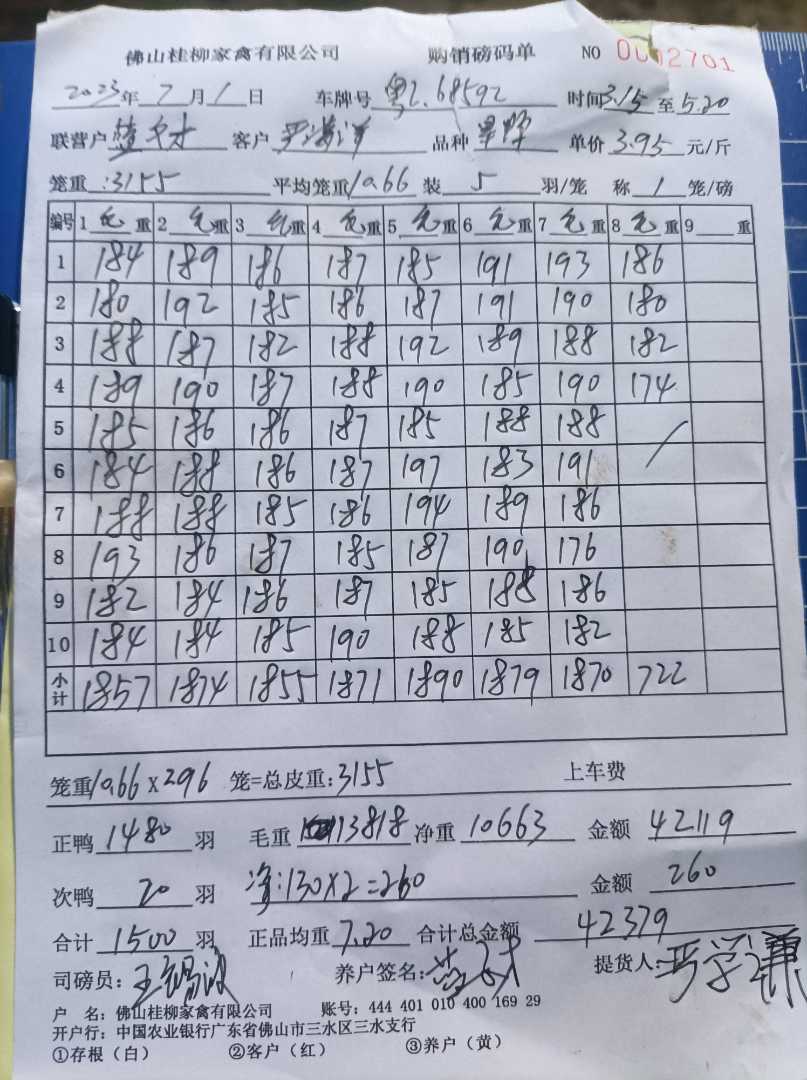 佛山桂柳家禽有限公司 购销磅码单 NO 0002701
2023年7月1日 车牌号 粤L.68592 时间3.15至5.20
联营户 客户 品种 单价3.95元/斤
笼重:3155 平均笼重10.66装5羽/笼 称1笼/磅
编号 1毛重 2毛重 3毛重 4毛重 5毛重 6毛重 7毛重 8毛重 9重
1 184 189 186 187 185 191 193 186
2 180 192 185 186 187 191 190 180
3 188 187 182 188 192 189 188 182
4 189 190 187 188 190 185 190 174
5 185 186 186 187 185 188 188
6 184 188 186 187 197 183 191
7 188 188 185 186 194 189 186
8 193 186 187 185 187 190 176
9 182 184 186 187 185 188 186
10 184 184 185 190 188 185 182
小计 1857 1874 1855 1871 1890 1879 1870 722
笼重10.66×296 笼=总皮重:3155 上车费
正鸭1480羽 毛重13818净重10663 金额42119
次鸭20羽 净:130×2=260 金额260
合计1500羽 正品均重7.20 合计总金额42379
司磅员: 养户签名: 提货人:严学谦
户 名:佛山桂柳家禽有限公司 账号:444 401 010 400 169 29
开户行:中国农业银行广东省佛山市三水区三水支行
①存根(白) ②客户(红) ③养户(黄)